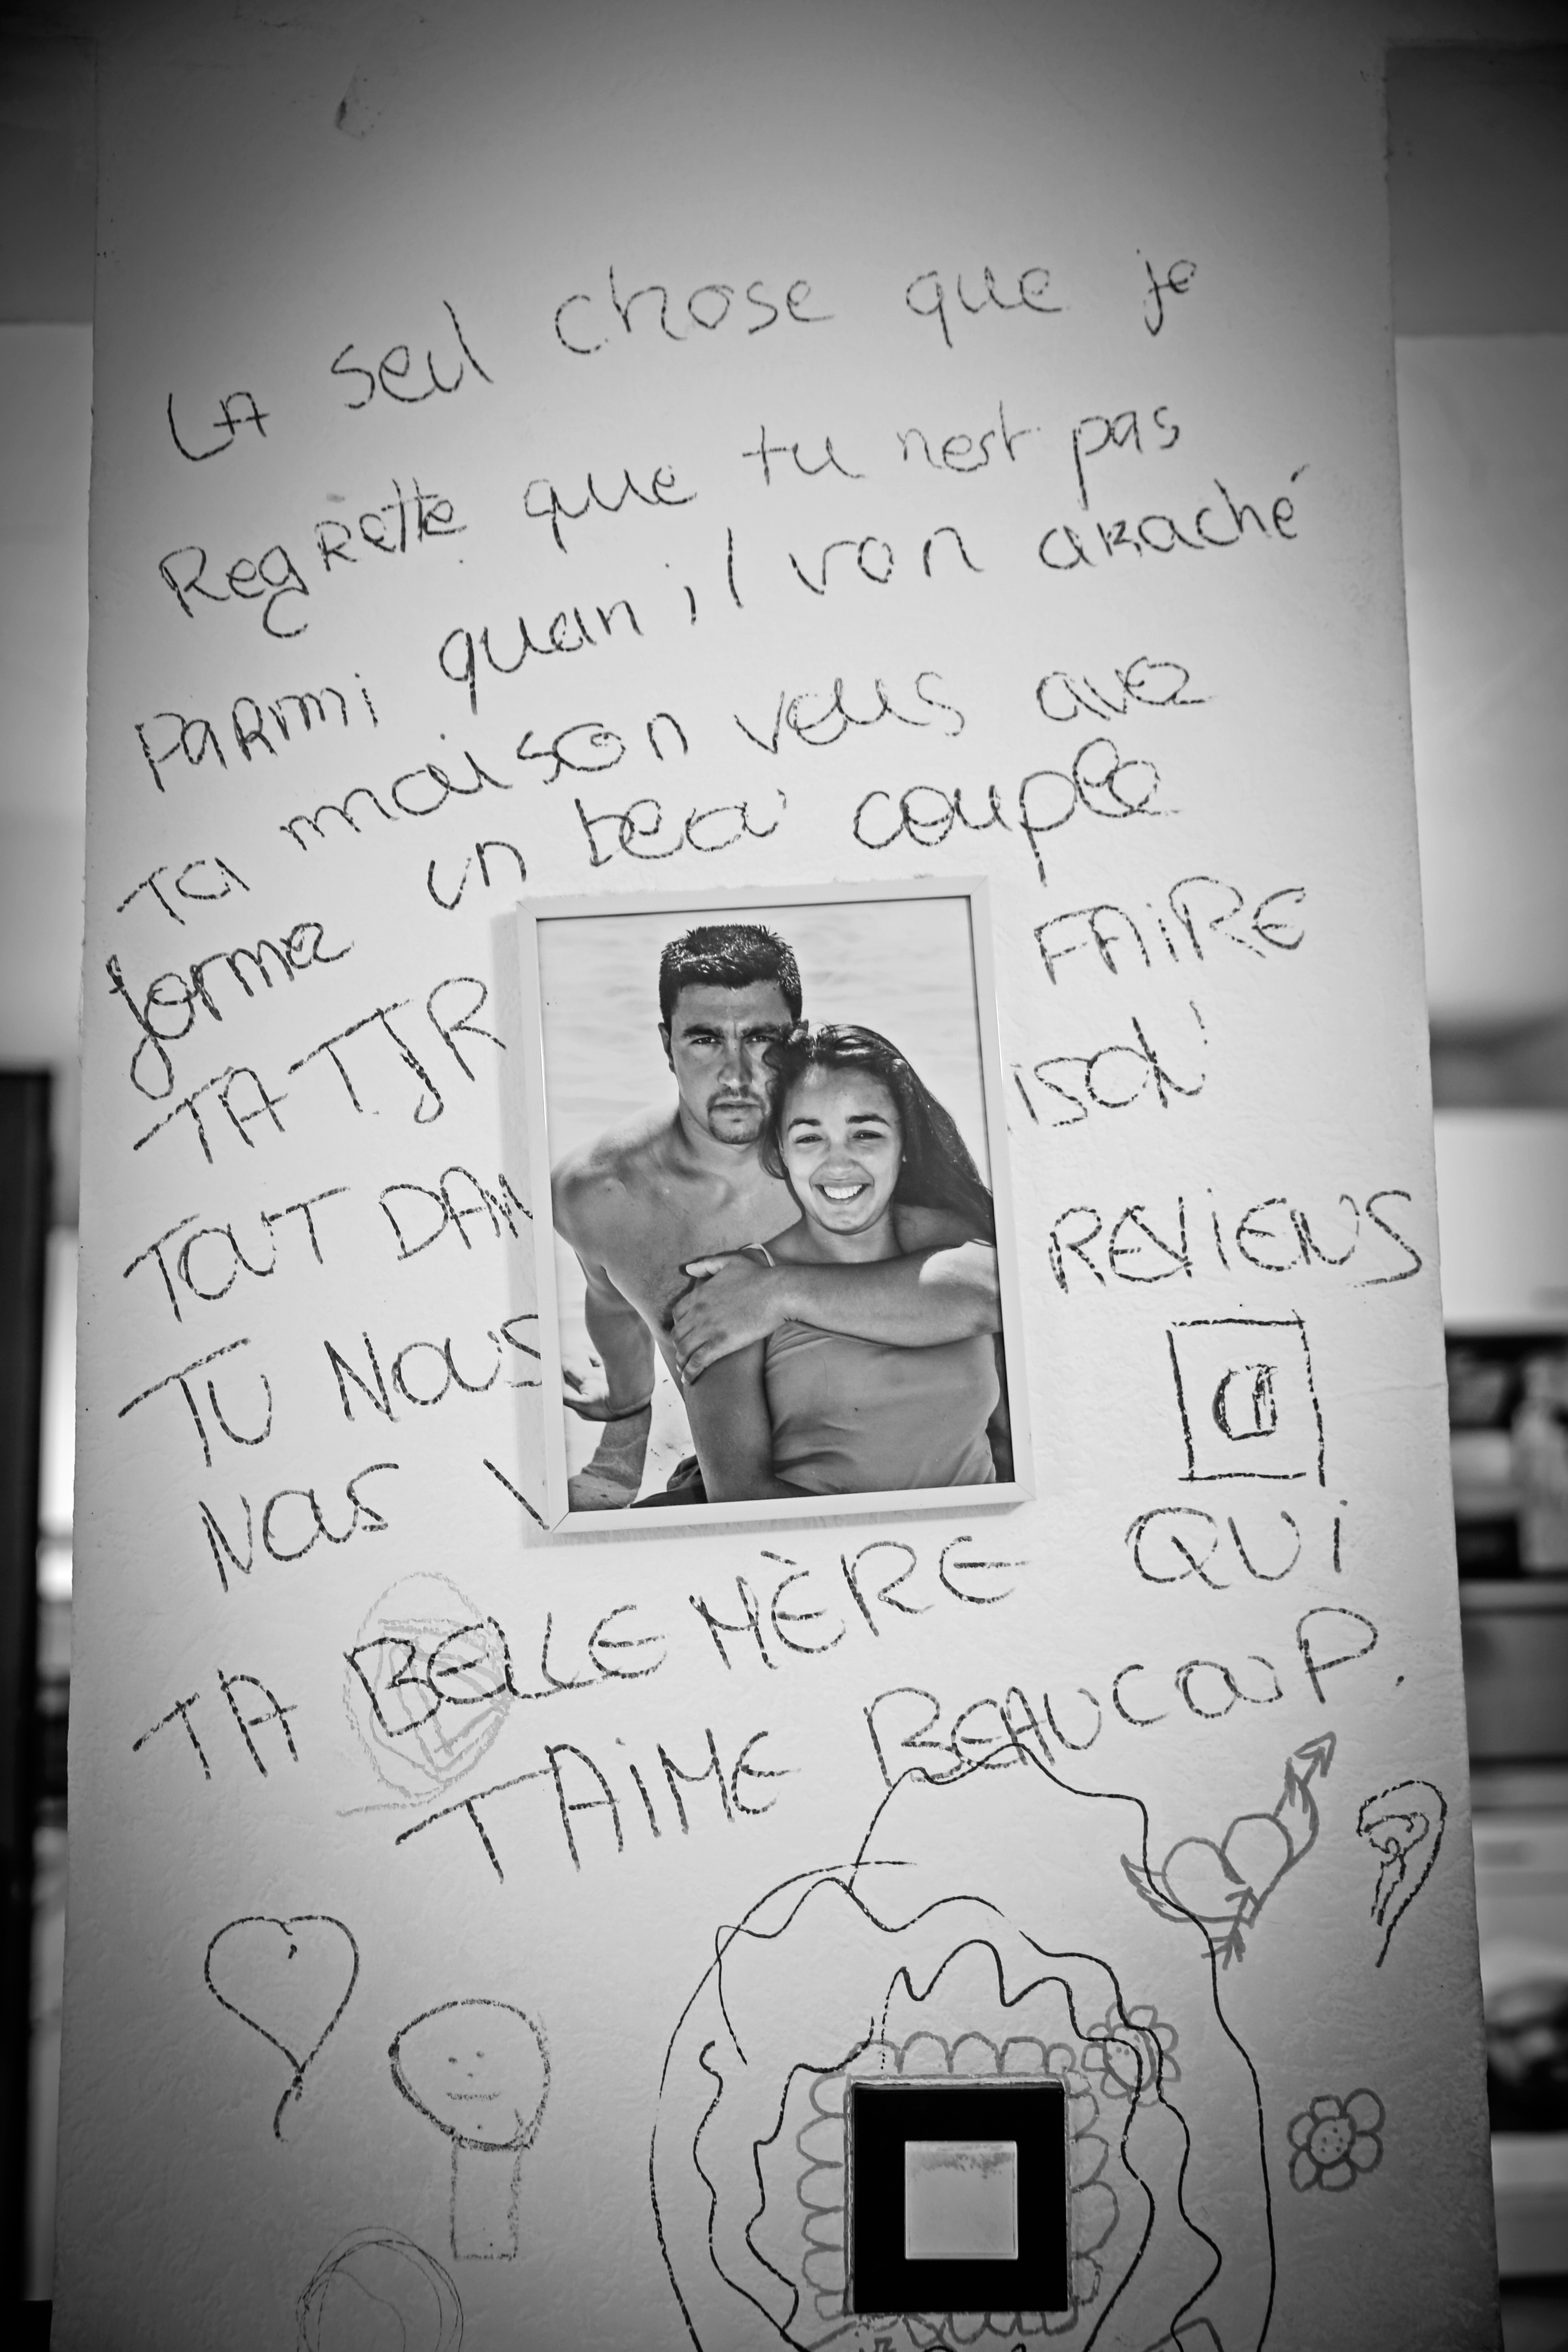 LA seul chose que je
Regrette que tu nest pas
PARmi quan il von araché
Ta maison vous avez
formez un beau couple
TA TJR FAIRE
TOUT DAN ISON
TU NOUS REVIENS
NOUS
TA BELLE MÈRE QUI
T'AIME BEAUCOUP.